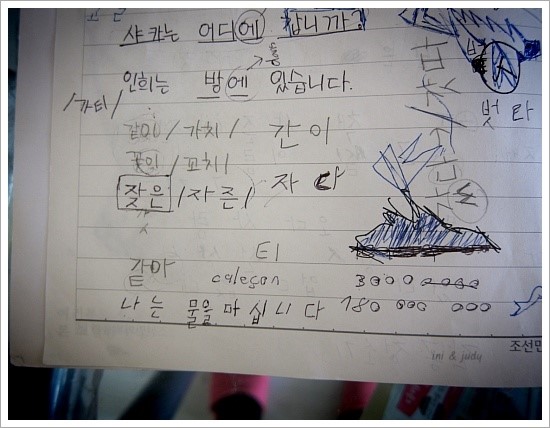 샤 카는 어디에 갑니까?
인희는 방에 있습니다.
/가티/
같이 / 가치 / 간 이
꽃이 / 꼬치 /
젖은 / 자 즌 / 자 다
벗 라
티
같아 caleçon 3000
나 는 물을 마 십 니 다 180 000 000
ini & judy
조선민